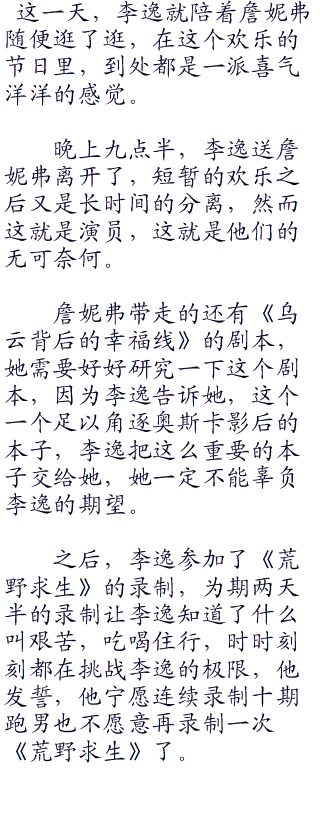 这一天，李逸就陪着詹妮弗
随便逛了逛，在这个欢乐的
节日里，到处都是一派喜气
洋洋的感觉。
晚上九点半，李逸送詹
妮弗离开了，短暂的欢乐之
后又是长时间的分离，然而
这就是演员，这就是他们的
无可奈何。
詹妮弗带走的还有《乌
云背后的幸福线》的剧本，
她需要好好研究一下这个剧
本，因为李逸告诉她，这个
一个足以角逐奥斯卡影后的
本子，李逸把这么重要的本
子交给她，她一定不能辜负
李逸的期望。
之后，李逸参加了《荒
野求生》的录制，为期两天
半的录制让李逸知道了什么
叫艰苦，吃喝住行，时时刻
刻都在挑战李逸的极限，他
发誓，他宁愿连续录制十期
跑男也不愿意再录制一次
《荒野求生》了。